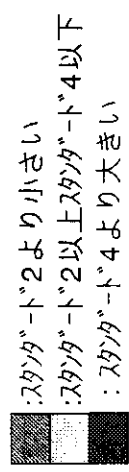 :スタンダード2より小さい
:スタンダード2以上スタンダード4以下
:スタンダード4より大きい